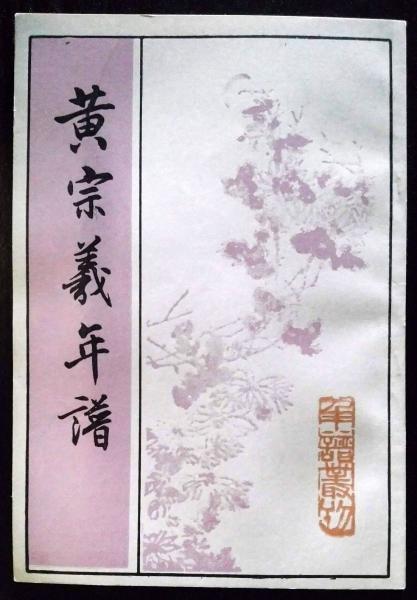 黄宗羲年谱
年譜叢刊